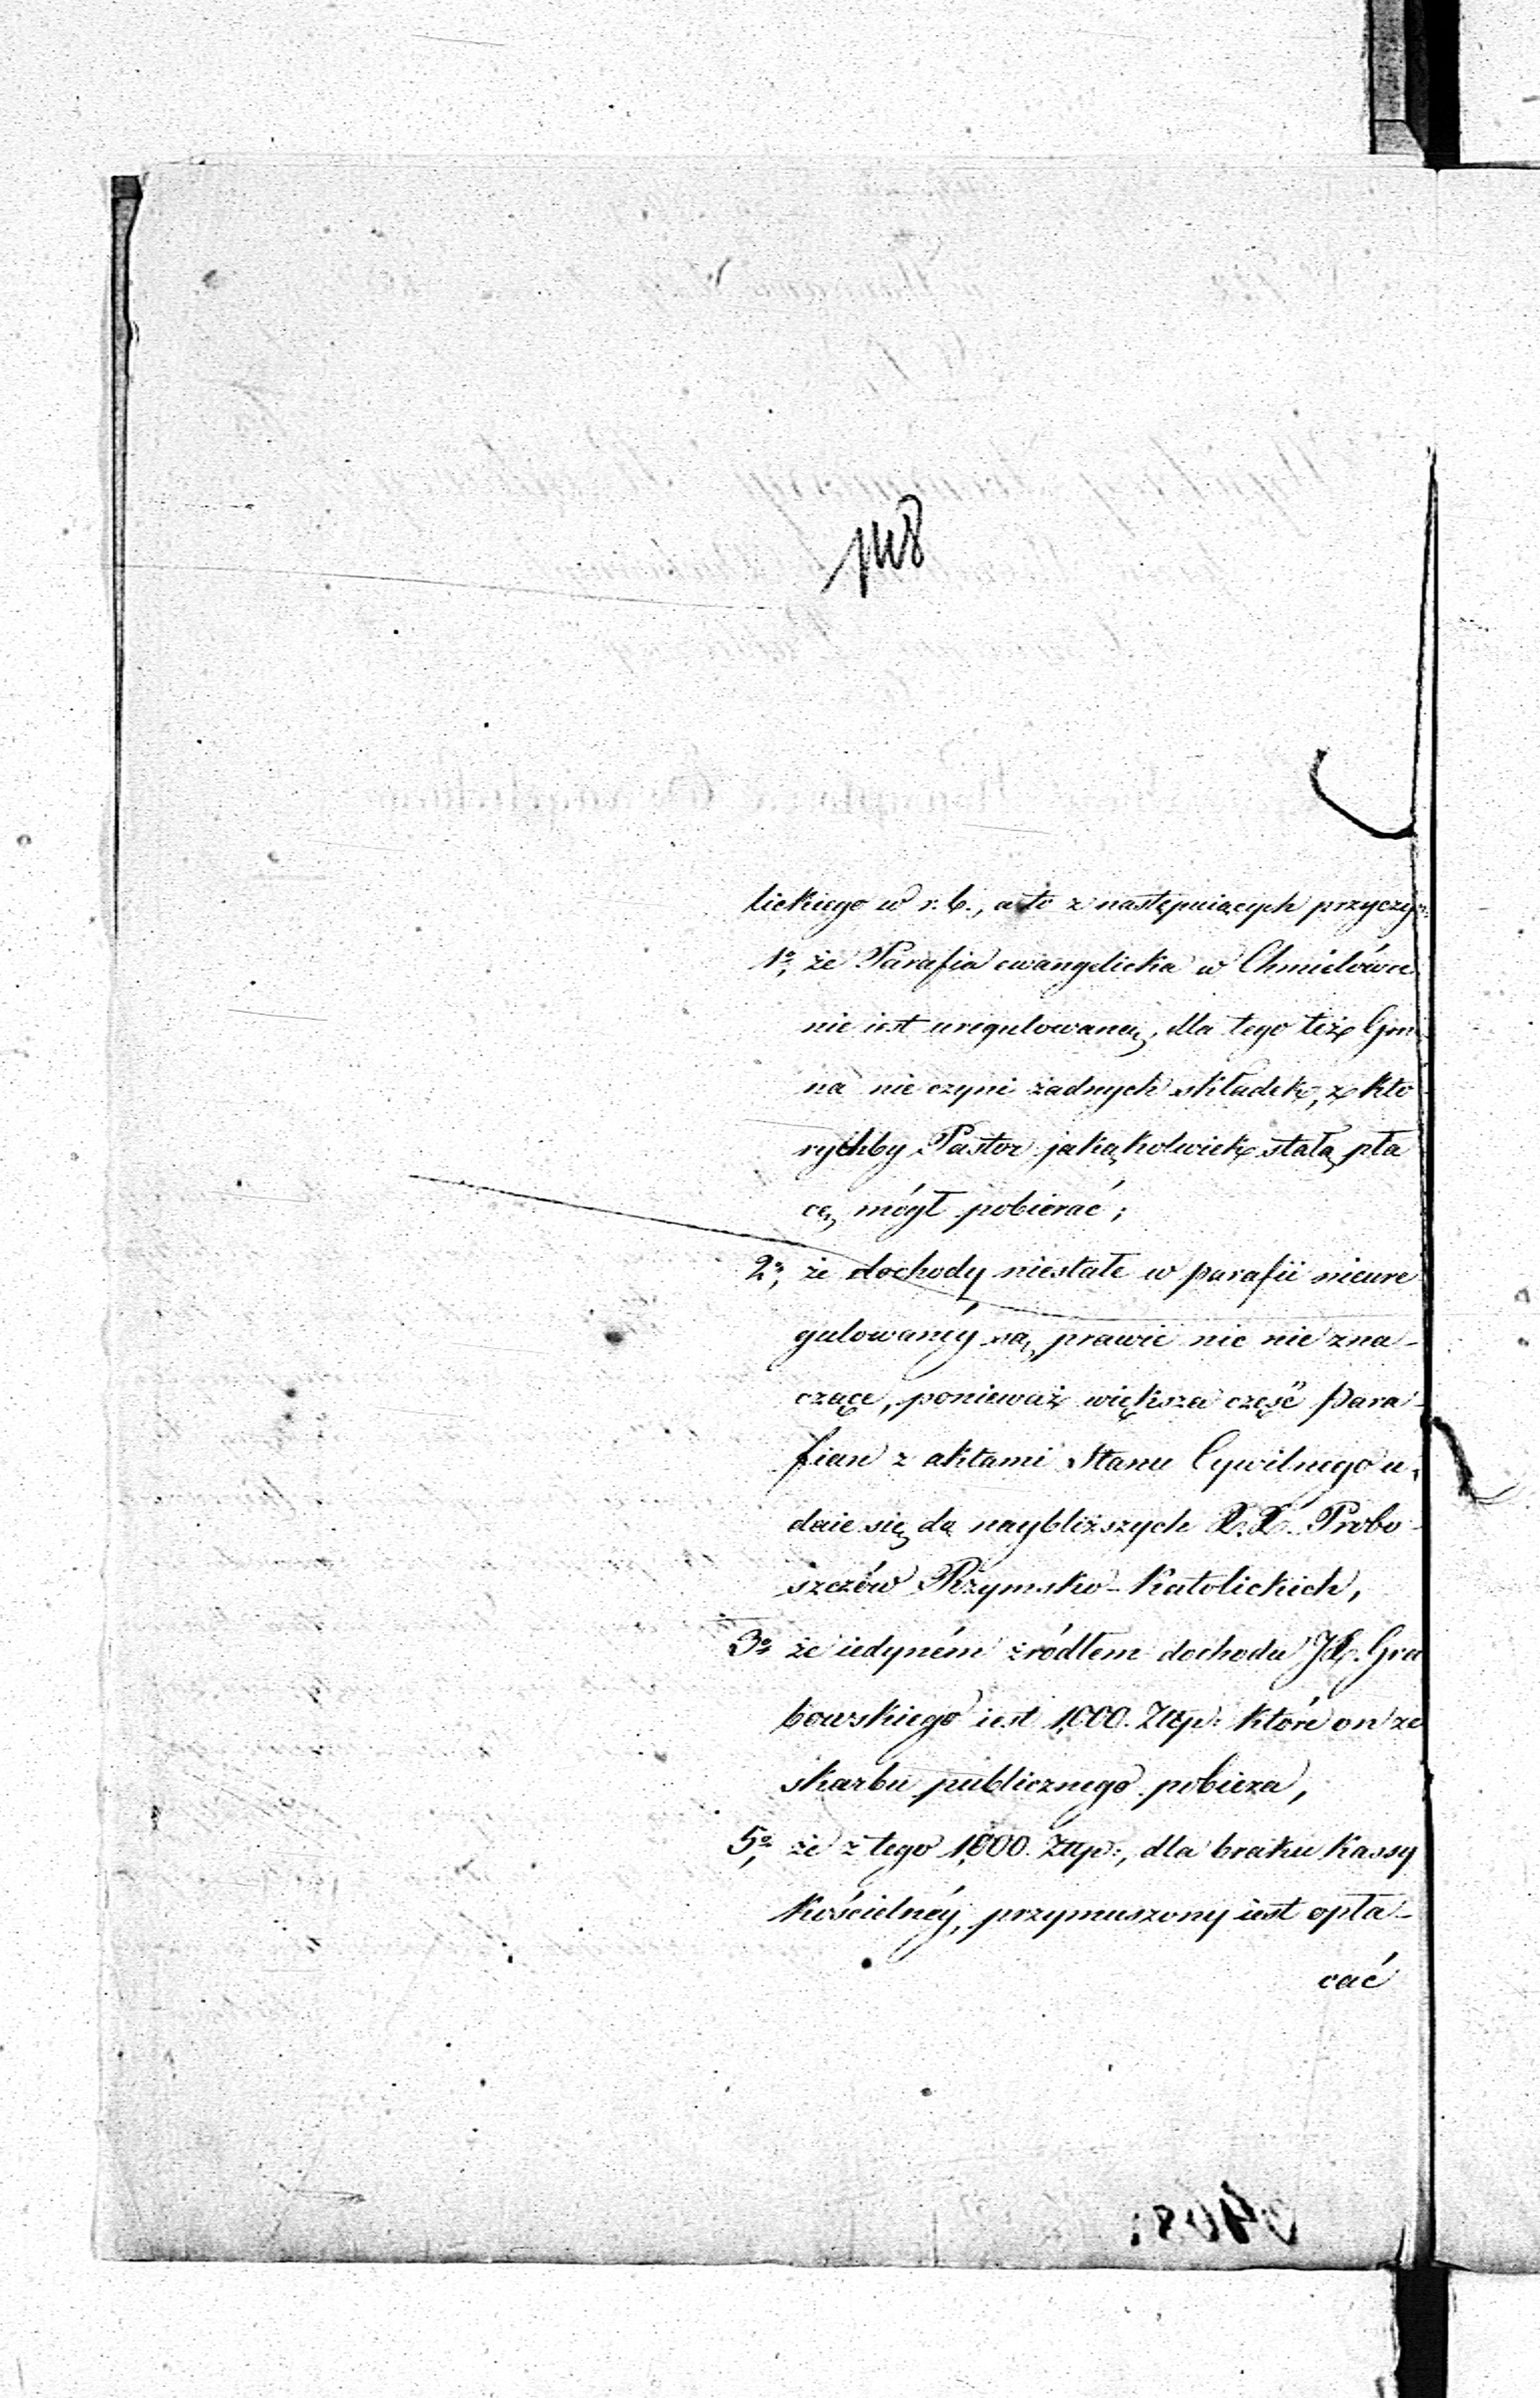 148
lickiego w r. b., a to z następuiących przyczyn
1º, że Parafia ewangelicka w Chmielówce
nie iest uregulowaną, dla tego też Gmi
na nie czyni żadnych składek, z któ
rychby Pastor jakąkolwiek stałą pła
cę, mógł pobierać;
2º, że dochody niestałe w parafii nieure
gulowanéy są, prawie nic nie zna-
czące, ponieważ większa część para-
fian z aktami Stanu Cywilnego u-
daie się do naybliższych X.X. Probo-
szczów Rzymsko-Katolickich,
3º że iedyném źródłem dochodu JX. Gra
bowskiego iest 1,000. Złtp: które on ze
skarbu publicznego pobiera,
5º, że z tego 1,000. Złtp:, dla braku Kassy
Kościelnéy, przymuszony iest opła-
cać